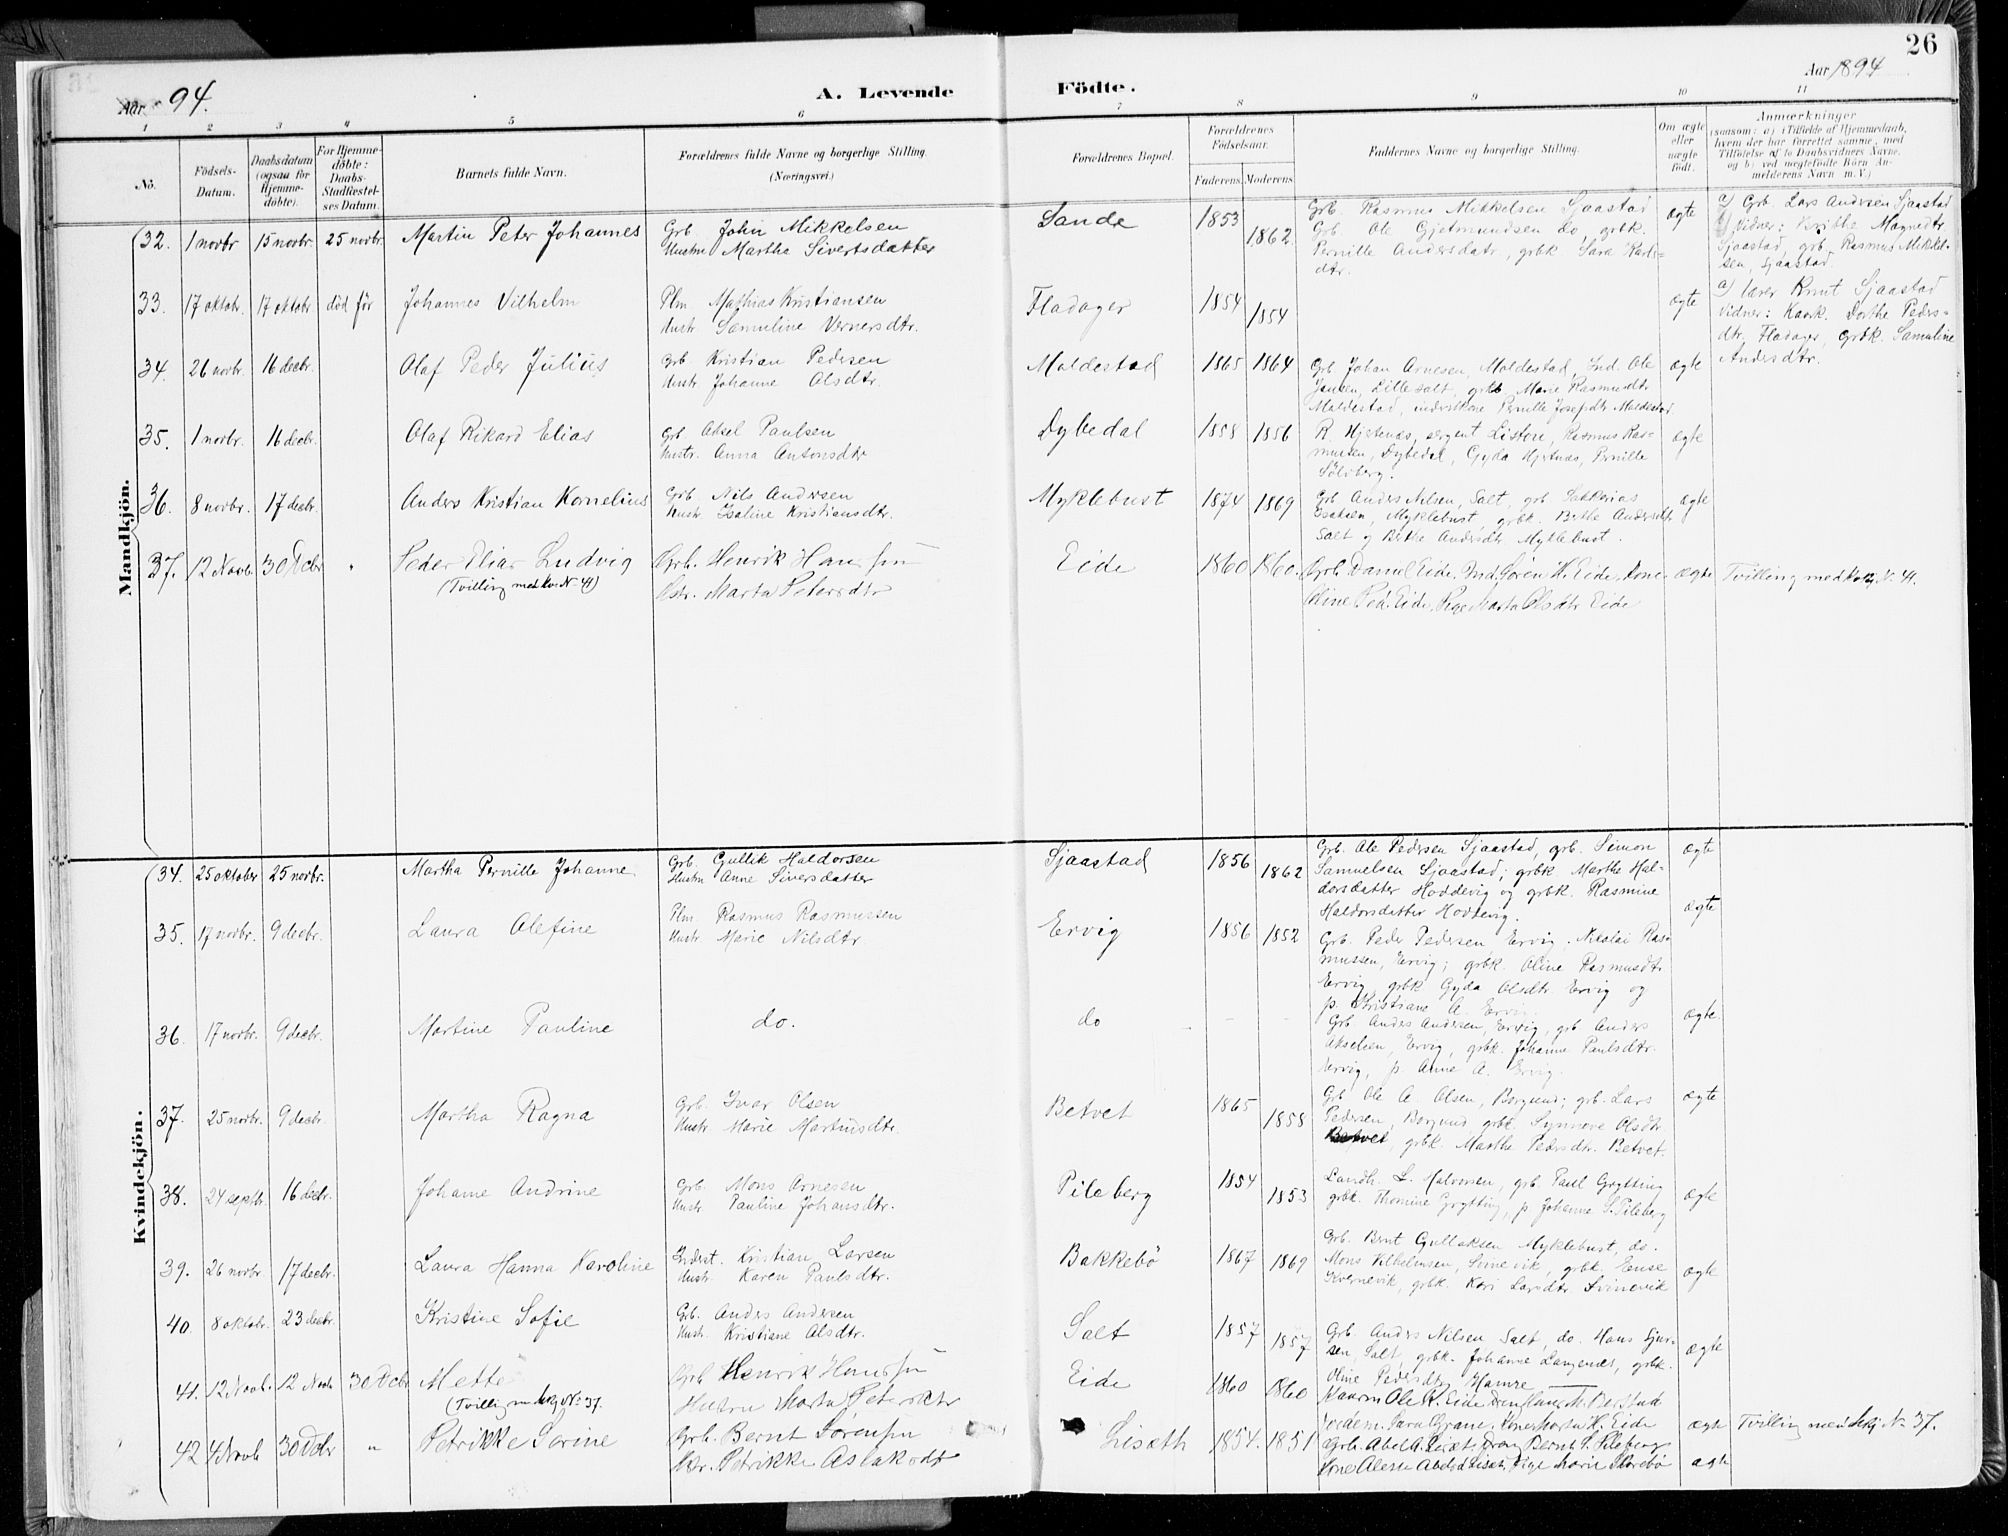 26
Aar 94.
A. Levende Födte.
Aar 1894
1 2 3 4 5 6 7 8 9 10 11
No.
Födsels-Datum.
Daabsdatum (ogsaa for Hjemme-döbte).
For Hjemme-döbte: Daabs-Stadfæstel-ses Datum.
Barnets fulde Navn.
Forældrenes fulde Navne og borgerlige Stilling.
(Næringsvei.)
Forældrenes Bopæl.
Forældrenes Födselsaar.
Faderens. Moderens.
Faddernes Navne og borgerlige Stilling.
Om ægte eller uægte födt.
Anmærkninger
(saasom: a) i Tilfælde af Hjemmedaab, hvem der har forrettet samme, med Tilföielse af to Daabsvidners Navne, og b) ved uægtefödte Börn An-melderens Navn m. V.)
Mandkjön.
32. 1 novbr 15 novbr. 25 novbr. Martin Peter Johannes
Grb. John Mikkelsen
Hustru Martha Sivertsdatter
Sande 1853 1862.
Grb. Rasmus Mikkelsen Sjaastad
Grb. Ole Gjetmundsen do, grbk.
Pernille Andersdatr., grbk Sara Karls-
dtr.
ægte
a) Grb. Lars Andersen Sjaastad
Vidner: Berithe Magnedtr
Sjaastad, grb. Rasmus Mikkel-
sen, Sjaastad
33. 17 oktobr. 17 oktobr død før Johannes Vilhelm
Plm. Mathias Kristiansen
Hustr. Samuline Vernersdtr.
Fladager 1854 1854 ægte
a) lærer Knut Sjaastad
Vidner: Kaark. Dorthe Peders-
dtr. Fladager, grbk. Samuline
Andersdtr.
34. 26 novbr. 16 decbr. Olaf Peder Julius
Grb Kristian Pedersen
Hustr. Johanne Olsdtr.
Moldestad 1865 1864
Grb Johan Arnesen, Moldestad, Ind. Ole
Jansen, Lillesalt, grbk Marie Rasmusdtr
Moldestad, inderstkone Pernille Josefsdtr Moldestad.
ægte
35. 1 novbr. 16 decbr. Olaf Rikard Elias
Grb. Aksel Paulsen
Hustr. Anna Antonsdtr
Dybedal 1858 1856
R. Hjertnæs, sergent Listou, Rasmus Ras-
mussen, Dybedal, Gyda Hjertnæs, Pernille
Sölvberg.
ægte
36. 8 novbr. 17 decbr. Anders Kristian Kornelius
Grb. Nils Andersen
Hustr. Isaline Kristiansdtr.
Myklebust 1874 1869
Grb Anders Nilsen, Salt, grb Sakkarias
Isaksen, Myklebust, grbk. Berthe Andersdtr
Salt og Berthe Andersdtr Myklebust.
ægte
37. 12 Novb. 30 Dcbr Peder Elias Ludvig
(Tvilling med kv. N 41)
Grb. Henrik Hansen
Hstr. Marta Petersdtr
Eide 1860 1860.
Grb. Daniel Eide, Ind. Søren H. Eide, Kone
Oline Ped. Eide, Pige Marta Olsdtr Eide
ægte Tvilling med Kv. N. 41.
Kvindekjön.
34. 25 oktober 25 novbr. Martha Pernille Johanne
Grb. Gullik Haldorsen
Hustru Anne Siversdatter
Sjaastad 1856 1862
Grb. Ole Pedersen Sjaastad, grb. Simon
Samuelsen Sjaastad; grbk Marthe Hal-
dorsdatter Hoddevig og grbk. Rasmine
Haldorsdatter Hoddevig.
ægte
35. 17 novbr. 9 decbr. Laura Olefine
Plm. Rasmus Rasmussen
Hustr. Marie Nilsdtr.
Ervig 1856 1852
Grb. Peder Pedersen Ervig, Nikolai Ras-
mussen, Ervig; grbk. Oline Rasmusdtr.
Ervig, grbk Gyda Olsdtr Ervig og
p. Kristiane A. Ervig.
ægte
36. 17 novbr. 9 decbr. Martine Pauline
do. do - - -
Grb. Anders Andersen, Ervig, grb Anders
Akselsen, Ervig, grbk. Johanne Paulsdtr.
Ervig, p. Anne A. Ervig.
ægte
37. 25 novbr. 9 decbr. Martha Ragna
Grb. Ivar Olsen
Hustr Marie Martinsdtr.
Betvet 1865 1858
Grb Ole A. Olsen, Borgund; grb. Lars
Pedersen, Borgund, grbk. Synneve Olsdtr
Betvet, grbk. Marthe Pedersdtr. Betvet.
ægte
38. 24 septbr. 16 decbr. Johanne Andrine
Grb. Mons Arnesen
Hustr. Pauline Johansdtr.
Pileberg 1854 1853
Landh. L. Halvorsen, grb. Paul Grytting
grbk. Thomine Grytting, p. Johanne S. Pileberg
ægte
39. 26 novbr. 17 decbr. Laura Hanna Karoline
Inderst. Kristian Larsen
Hustr. Karen Paulsdtr.
Bakkebö 1867 1869
Grb. Bernt Gullaksen Myklebust, do.
Mons Vilhelmsen, Svinevik, grbk. Ense
Kvernevik, grbk. Kari Larsdtr. Svinevik
ægte
40. 8 oktobr. 23 decbr. Kristine Sofie
Grb. Anders Andersen
Hustr. Kristiane Olsdtr.
Salt 1857 1857
Grb. Anders Nilsen Salt, do. Hans Sjur-
sen Salt, grbk. Johanne Langenæs, grbk.
Oline Pedersdtr Hamre
ægte
41. 12 Novb. 12 Novb 30 Dcbr Mette
(Tvilling m. Mkj N: 37.
Grb Henrik Hansen
Hustru Marta Petersdtr
Eide 1860 1860.
ægte Tvilling med Mkj N. 37.
42 4 Novb 30 Dcbr " Petrikke Sorine
Grb. Bernt Sørensen
Hstr. Petrikke Aslaksdtr
Lisæth 1854. 1851
ægte